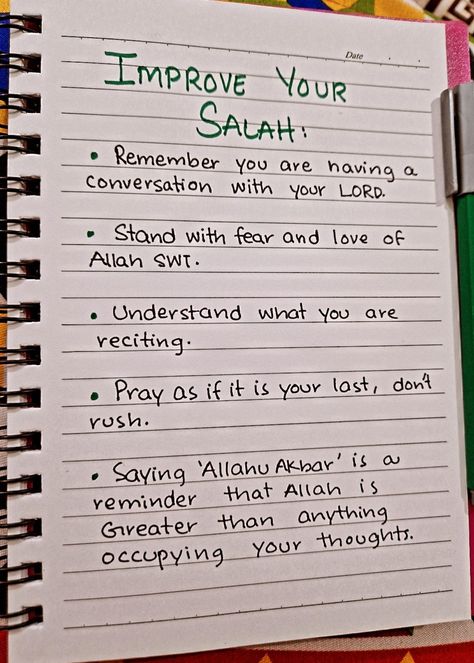 Date
IMPROVE YOUR
SALAH:
• Remember you are having a
conversation with your LORD.
• Stand with fear and love of
Allah SWT.
• Understand what you are
reciting.
• Pray as if it is your last, don't
rush.
• Saying 'Allahu Akbar' is a
reminder that Allah is
Greater than anything
occupying your thoughts.